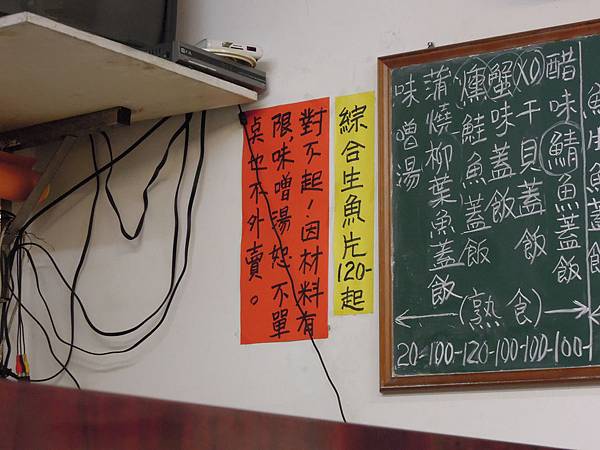 醋味鯖魚蓋飯
XO干貝蓋飯
蟹味蓋飯
燻鮭魚蓋飯
蒲燒柳葉魚蓋飯
味噌湯
(熟食)
20=100-120-100-100-100-
綜合生魚片120-起
對不起!因材料有
限,味噌湯恕不單
奌也不外賣。